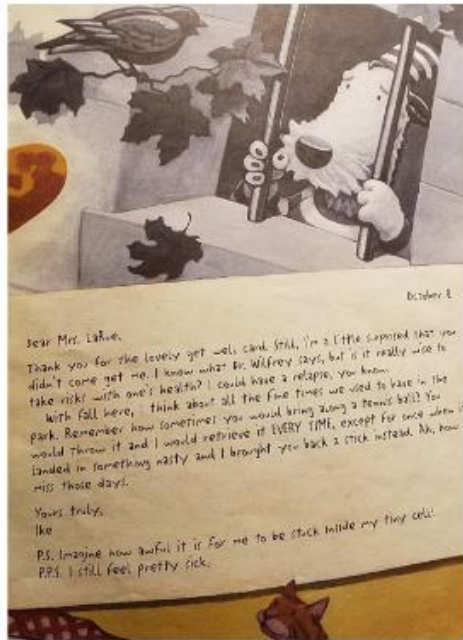 October 8
Dear Mrs. LaRue,
Thank you for the lovely get well card. Still, I'm a little surprised that you
didn't come get me. I know what Dr. Wilfrey says, but is it really wise to
take risks with one's health? I could have a relapse, you know.
With fall here, I think about all the fine times we used to have in the
park. Remember how sometimes you would bring along a tennis ball? You
would throw it and I would retrieve it EVERY TIME, except for once when it
landed in something nasty and I brought you back a stick instead. Ah, how
miss those days.
Yours truly,
Ike
P.S. Imagine how awful it is for me to be stuck inside my tiny cell!
P.P.S. I still feel pretty sick.